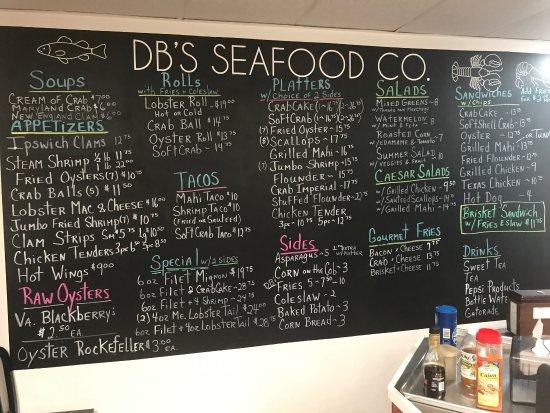 DB'S SEAFOOD CO.
Soups
CREAM OF CRAB $7.00
MARYLAND CRAB $6.00
NEW ENGLAND CLAM $7
APPETIZERS
IPSWICH CLAMS 12
STEAM SHRIMP
FRIED OYSTERS (7) $10
CRAB BALLS (5) $11.50
LOBSTER MAC & CHEESE $10
JUMBO FRIED SHRIMP (7) $10
CLAM STRIPS
CHICKEN TENDERS 3pc 5pc
HOT WINGS $9.00
RAW OYSTERS
VA. BLACKBERRY'S
$2.50 EA.
OYSTER ROCKEFELLER $3.00 EA.
ROLLS
WITH FRIES + COLESLAW
LOBSTER ROLL - $19.00
HOT OR COLD
CRAB BALL - $14
OYSTER ROLL $13
SOFTCRAB - $14
TACOS
MAHI TACO $10
SHRIMP TACO $10
(FRIED OR SAUTEED)
SOFTCRAB TACO $12
SPECIAL W/2 SIDES
6oz FILET MIGNON $19.75
6oz FILET & CRABCAKE - 28.75
6oz FILET + 4 SHRIMP - 24.75
(2) 4oz ME. LOBSTER TAIL $24.00
6oz FILET + 4oz LOBSTER TAIL $28.75
PLATTERS
W/CHOICE OF 2 SIDES
CRABCAKE (1-16.75) (2-26.75)
SOFTCRAB (1-16.75) (2-26.75)
(7) FRIED OYSTER - 15.75
(8) SCALLOPS - 17.75
GRILLED MAHI - 16.75
(7) JUMBO SHRIMP - 15.75
FLOUNDER - 15.75
CRAB IMPERIAL - 17.75
STUFFED FLOUNDER - 22.75
CHICKEN TENDER
SIDES
ASPARAGUS - 5
CORN ON THE COB - 3
FRIES - 5 - 7.50
COLESLAW - 2
BAKED POTATO - 3
CORN BREAD - 3
SALADS
MIXED GREENS - 8
WATERMELON - 8
W/ MINT & FETA
ROASTED CORN
W/EDAMAME & TOMATO - 8
SUMMER SALAD - 10
CAESAR SALADS
W/GRILLED CHICKEN - 9.50
W/SAUTEED SCALLOPS - 14.75
W/GRILLED MAHI - 14.75
GOURMET FRIES
BACON + CHEESE 7.75
CRAB + CHEESE 13.75
BRISKET + CHEESE 11.75
SANDWICHES
W/CHIPS
CRABCAKE - 12
SOFTSHELL CRAB - 12
OYSTER - 12
GRILLED MAHI - 12
FRIED FLOUNDER - 12
GRILLED CHICKEN - 9
TEXAS CHICKEN - 10
HOT DOG - 4
BRISKET SANDWICH
W/FRIES & SLAW $11.75
DRINKS
SWEET TEA
TEA
PEPSI PRODUCTS
BOTTLE WATER
GATORADE
ADD FRIES
FOR $2